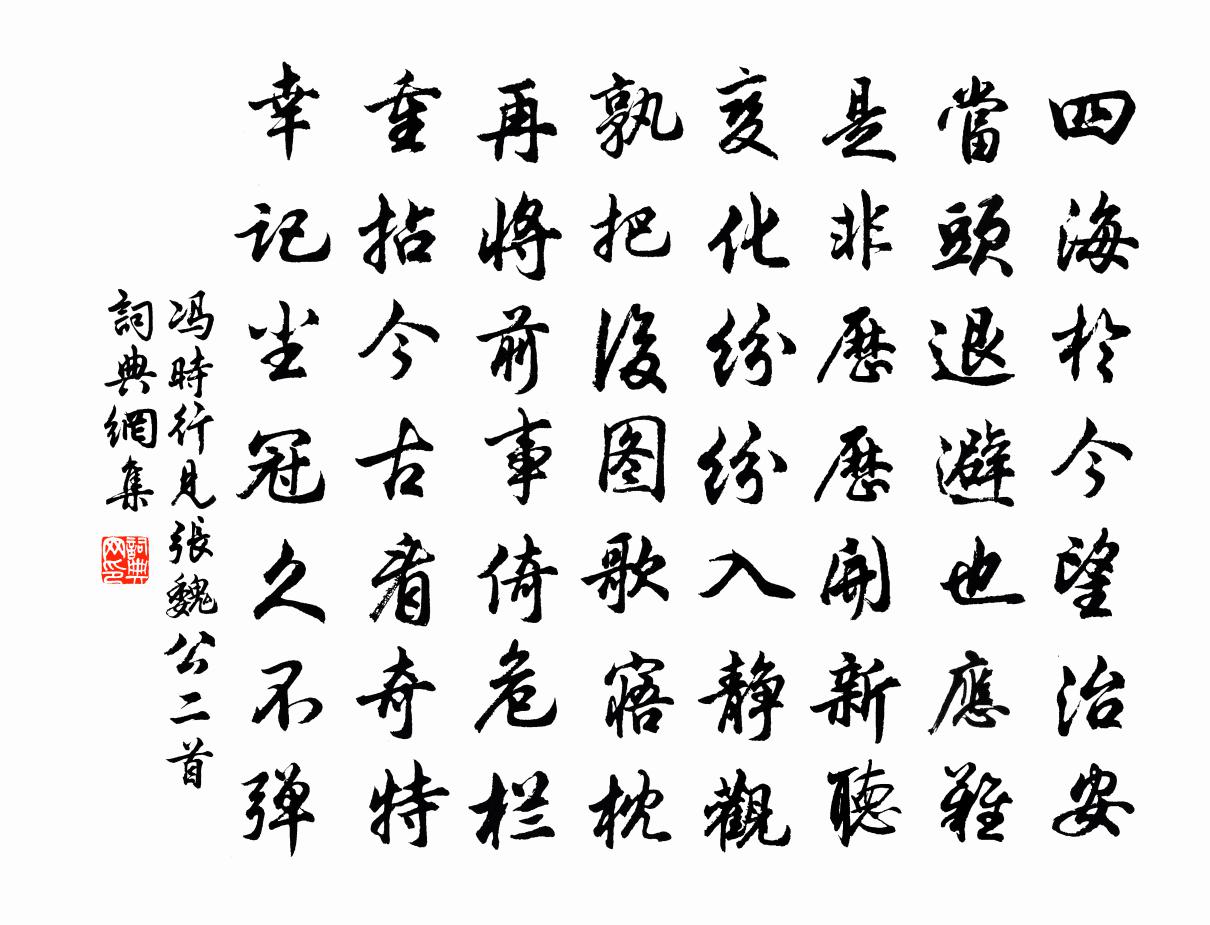 四海於今望治安
當頭退避也應難
是非歷歷開新聽
变化紛紛入静觀
孰把後图歌寤枕
再将前事倚危栏
重拈今古看奇特
幸记尘冠久不弹
冯時行見張魏公二首
詞典網集
詞典网印